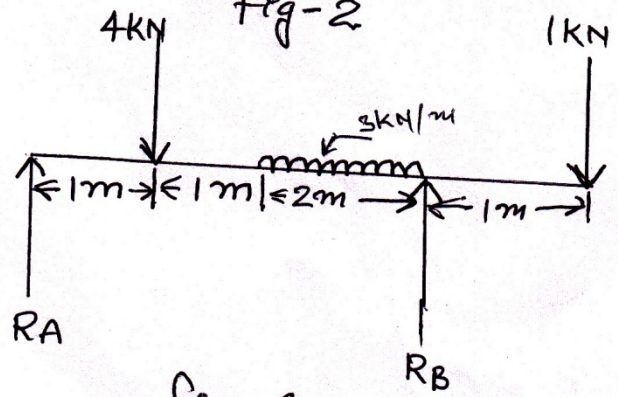 Fig-2
4KN
1KN
3KN/m
1m 1m 2m 1m
RA
RB